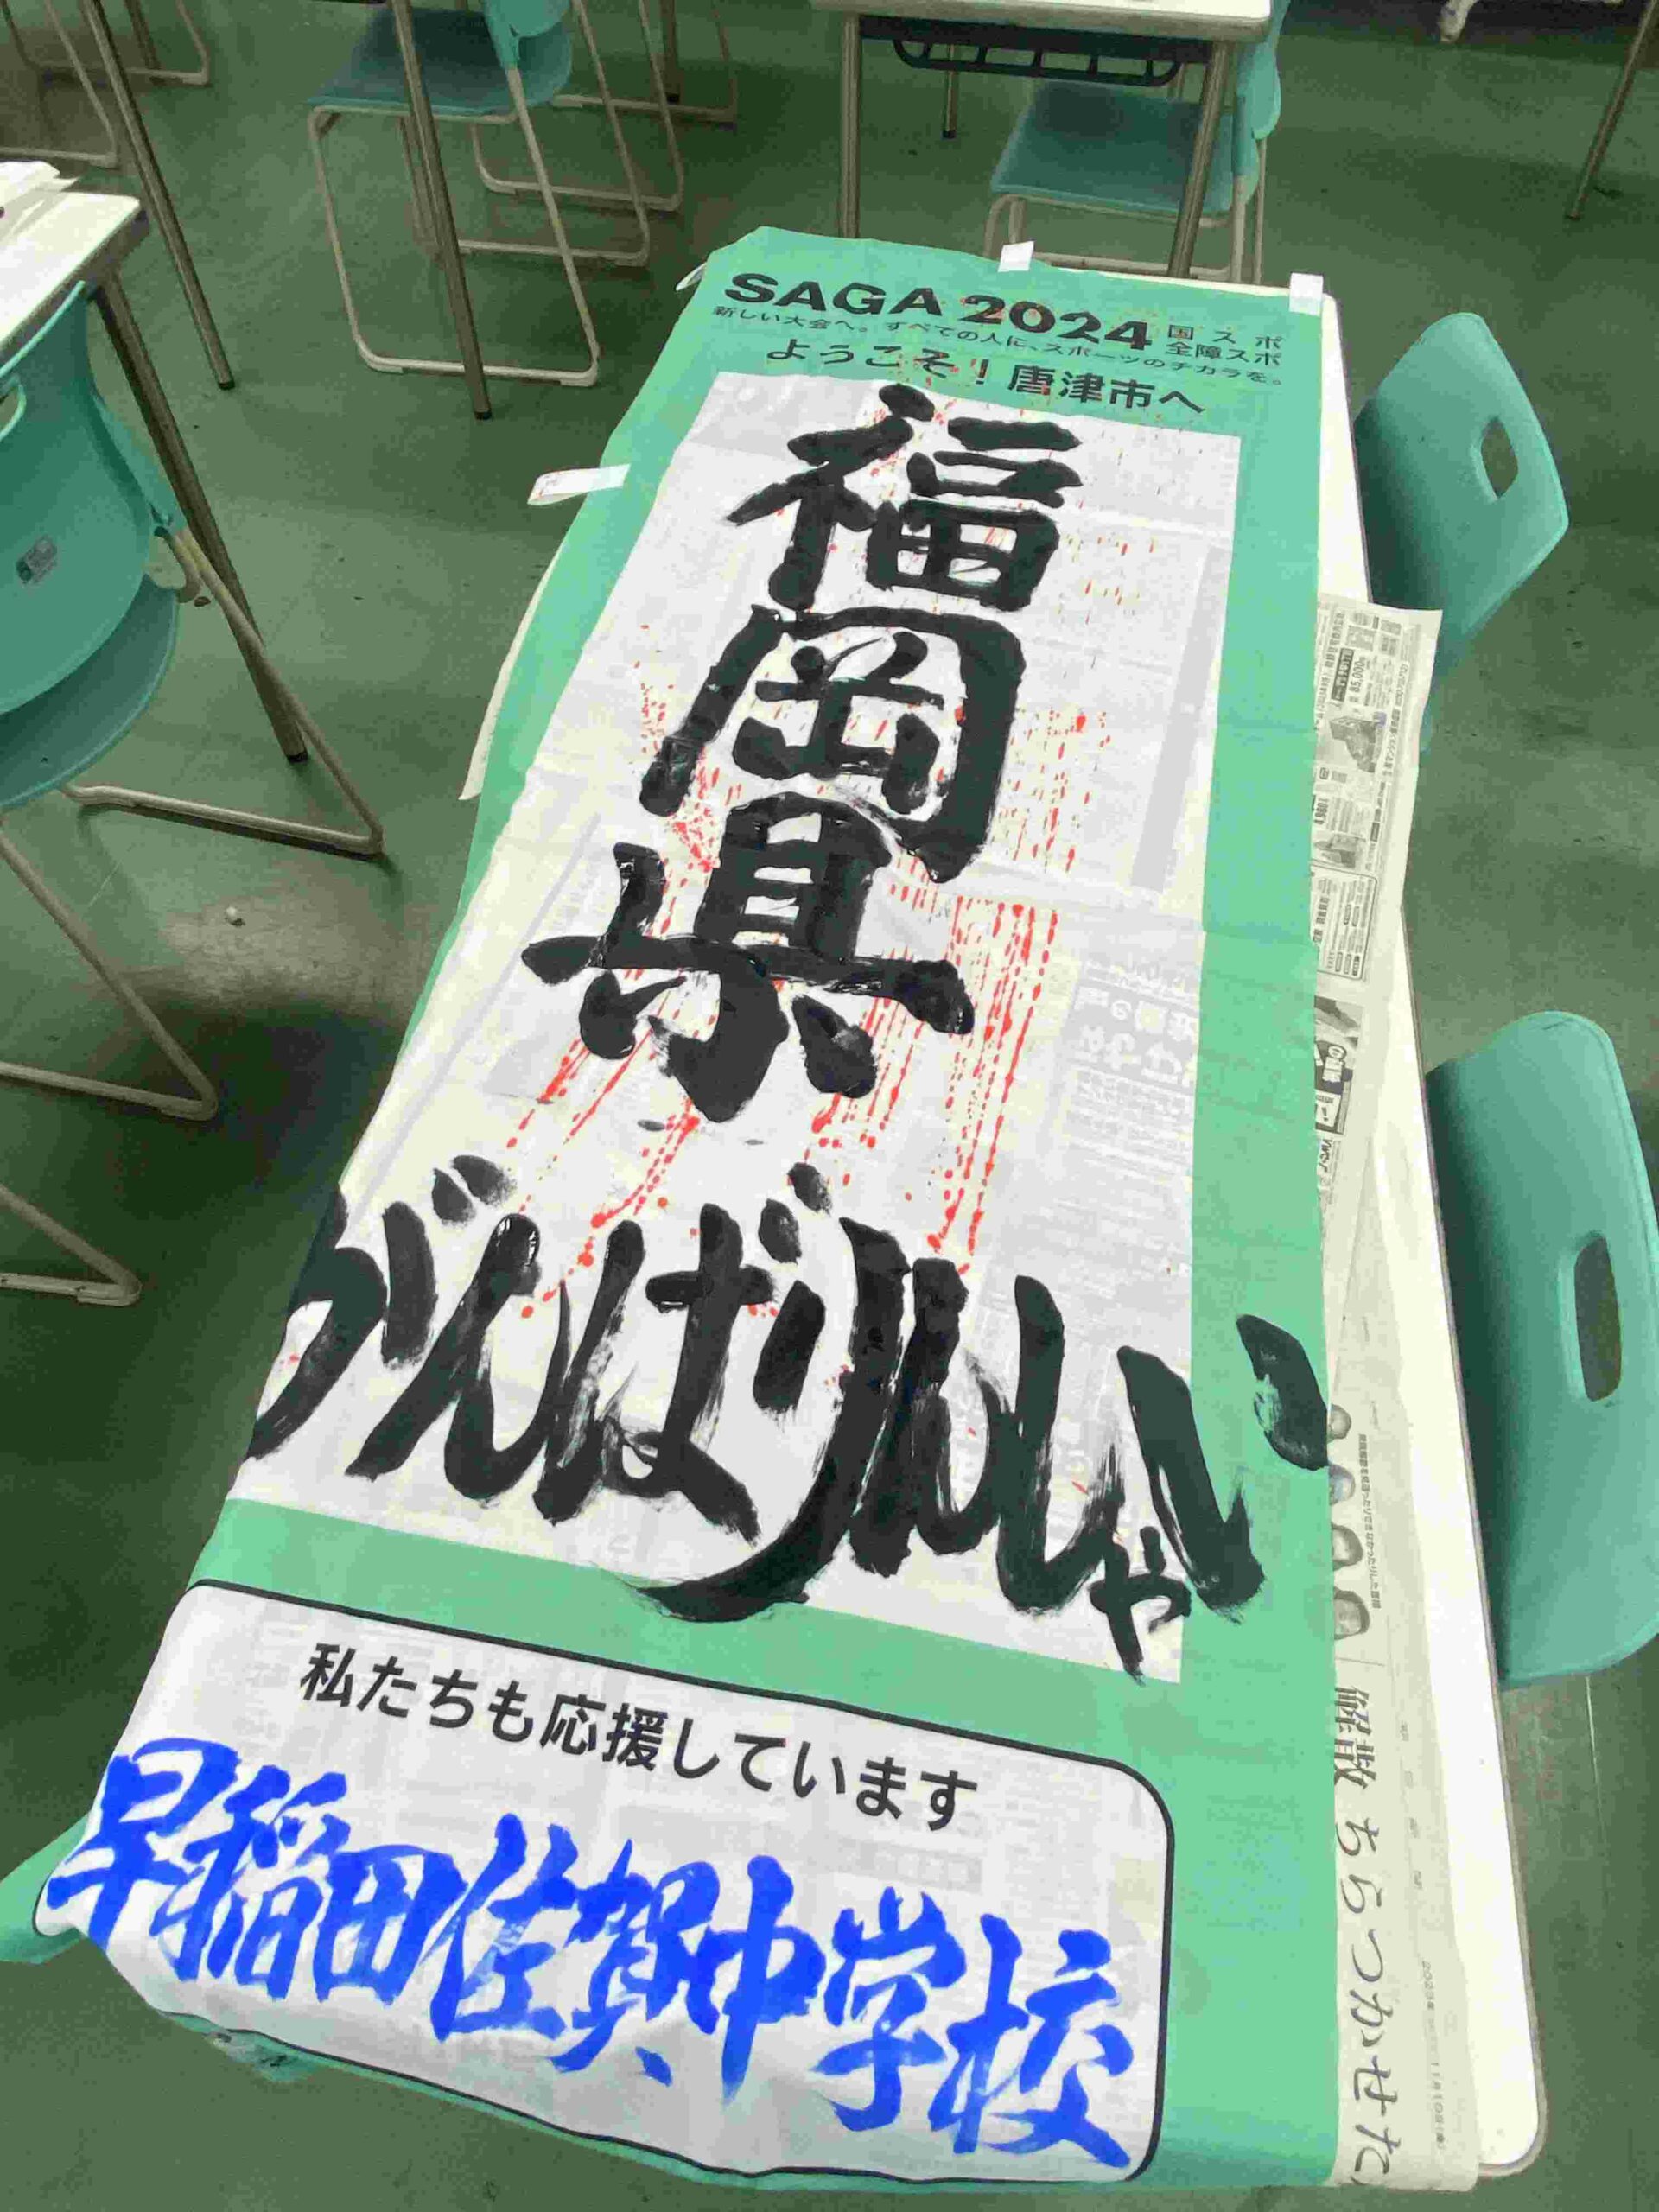 SAGA 2024 国スポ 全障スポ
新しい大会へ。すべての人に、スポーツのチカラを。
ようこそ！唐津市へ
福岡県
がんばりんしゃい
私たちも応援しています
早稲田佐賀中学校
解散 ちらつかせた